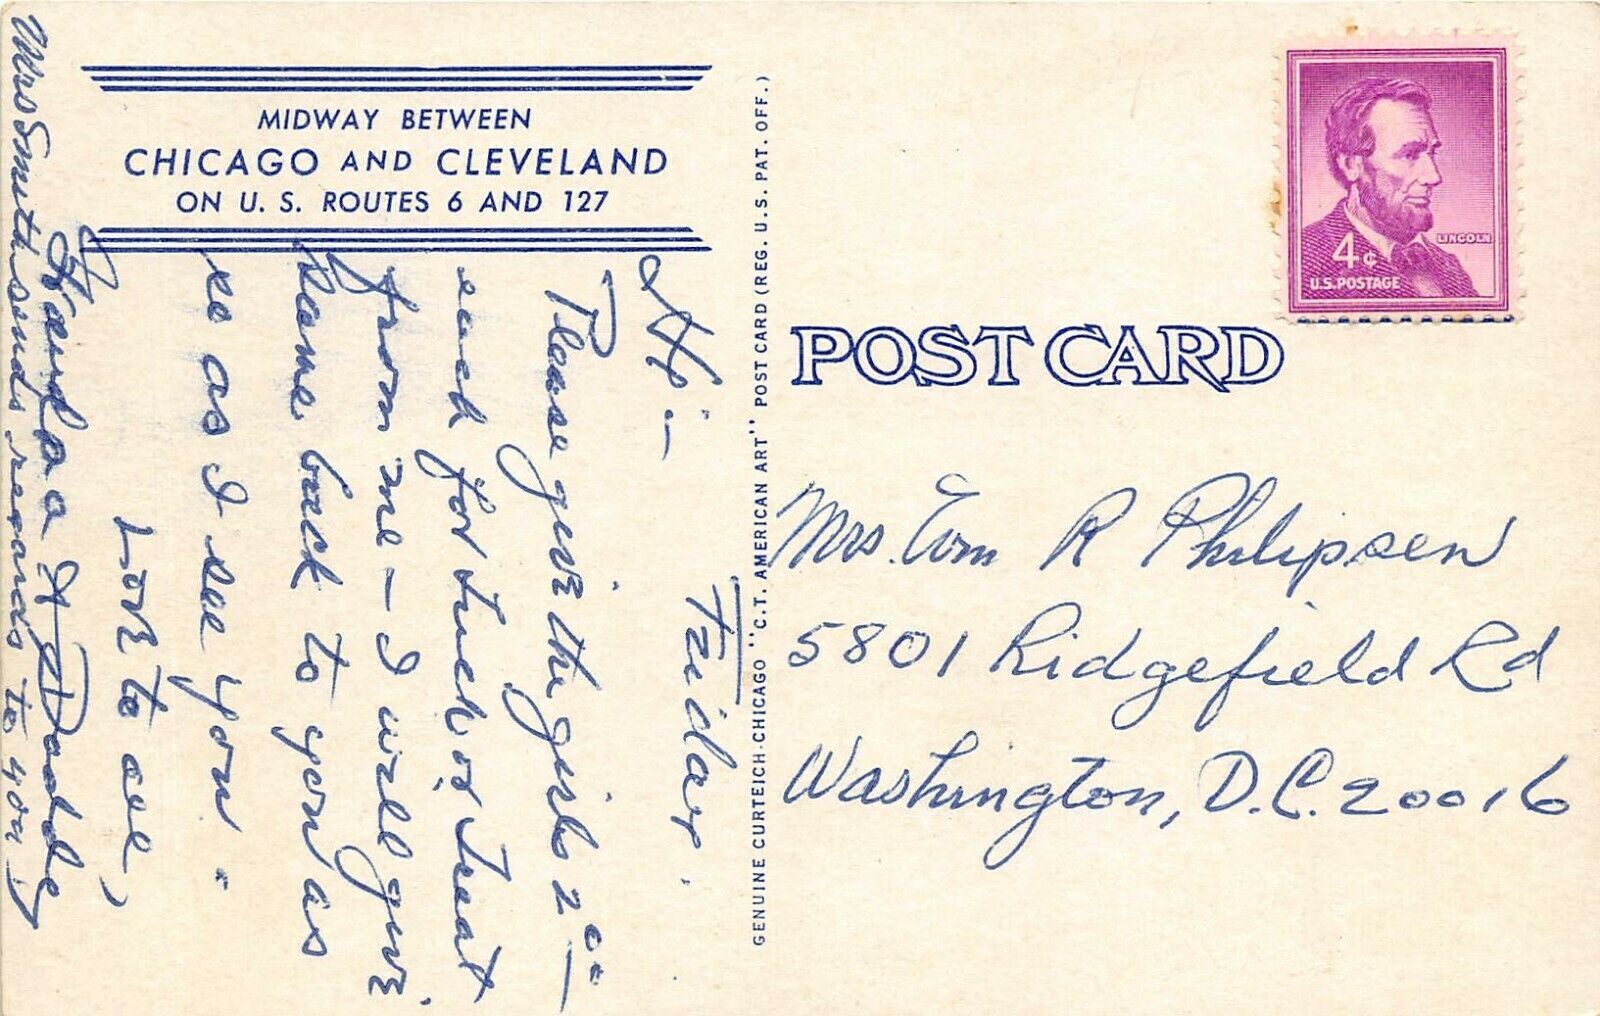 MIDWAY BETWEEN
CHICAGO AND CLEVELAND
ON U. S. ROUTES 6 AND 127
Friday.
Hi –
Please give the girls 2⁰⁰
each for trick or treat
from me – I will give
same back to you as
so as I see you.
Love to all,
& Daddy
Mrs Smith sends regards to you
GENUINE CURTEICH-CHICAGO "C.T. AMERICAN ART" POST CARD (REG. U.S. PAT. OFF.)
4¢
LINCOLN
U.S. POSTAGE
POST CARD
Mrs. Tom R Philipsen
5801 Ridgefield Rd
Washington, D.C. 20016